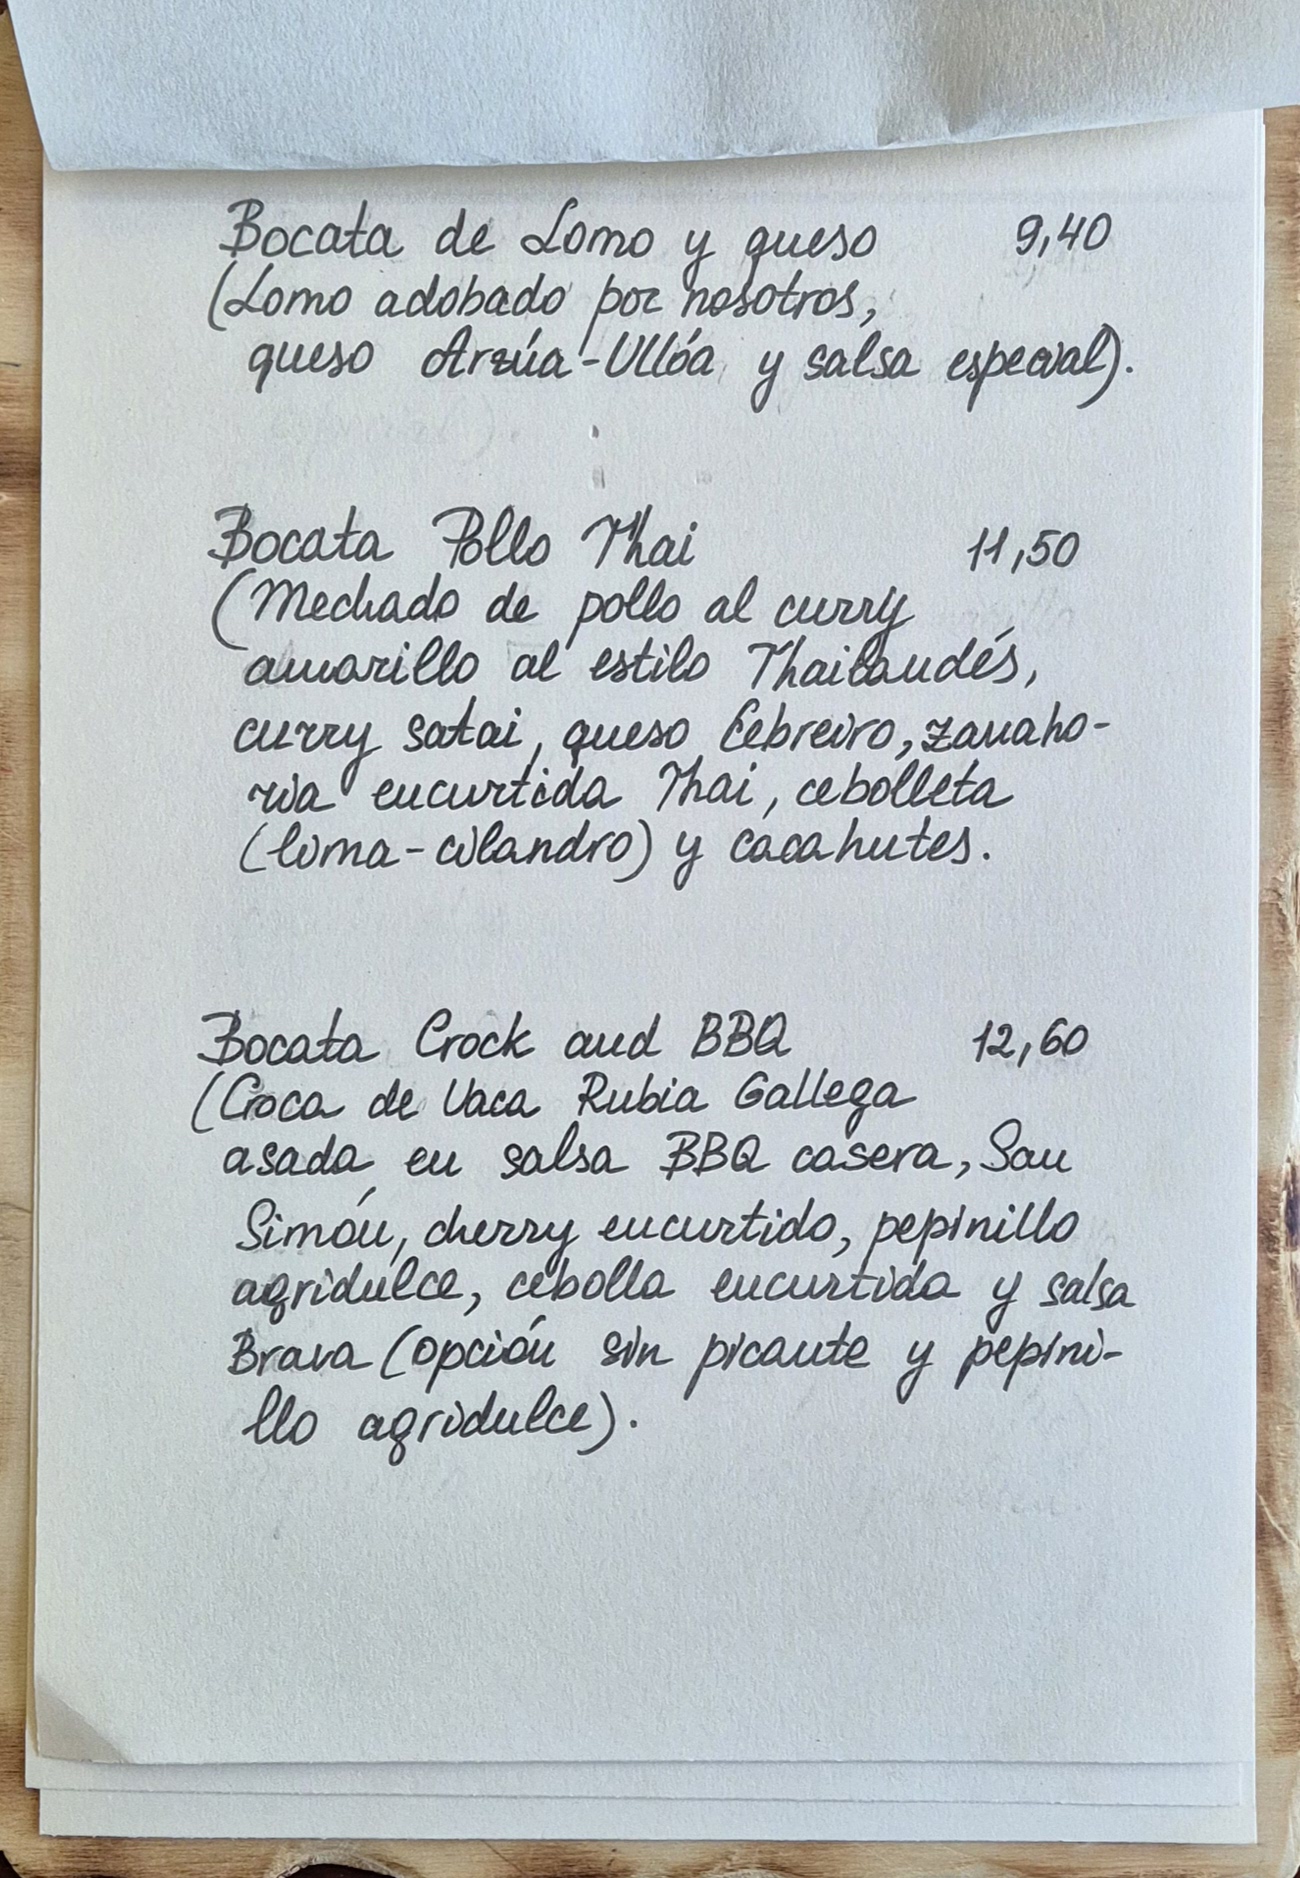 Bocata de Lomo y queso 9,40
(Lomo adobado por nosotros,
queso Arzúa-Ullóa y salsa especial).
Bocata Pollo Thai 11,50
(Mechado de pollo al curry
amarillo al estilo Thailandés,
curry satai, queso Cebreiro, zanaho-
ria encurtida Thai, cebolleta
(lima-cilandro) y cacahutes.
Bocata Crock and BBQ 12,60
(Croca de Vaca Rubia Gallega
asada en salsa BBQ casera, San
Simón, cherry encurtido, pepinillo
agridulce, cebolla encurtida y salsa
Brava (opción sin picante y pepini-
llo agridulce).